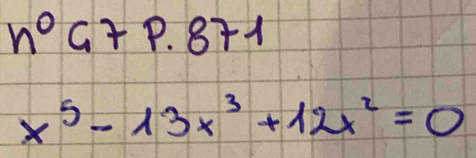 n° G7 P. 871
x⁵ - 13x³ + 12x² = 0